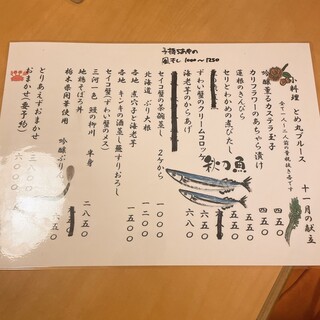 子持昆布の
風干し 1000〜1250
小料理 とめ丸ブルース 十一月の献立
全て一人〜二人前の骨規抜き等です
吟醸薫るカステラ玉子 四五〇
カリフラワーのあちゃら漬け 四五〇
蓮根のきんぴら 五五〇
セリとわかめの煮びたし 五五〇
ずわい蟹のクリームコロッケ 六五〇
海老芋のからあげ 六八〇
秋刀魚
セイコ蟹の茶碗蒸し 2ヶから 一〇〇〇
北海道 ぶり大根 一二〇〇
各地 煮穴子と海老芋
各地 キンキの酒蒸し蕪すりおろし 一五〇〇
セイコ蟹(ずわい蟹のメス)
三河一色 鰻の柳川 半身 二八五〇
地鶏そぼろ丼
栃木県岡箸使用 六五〇
吟醸ぷりん
とりあえずおまかせ 三〇〇〇
おまかせ(要予約) 六〇〇〇